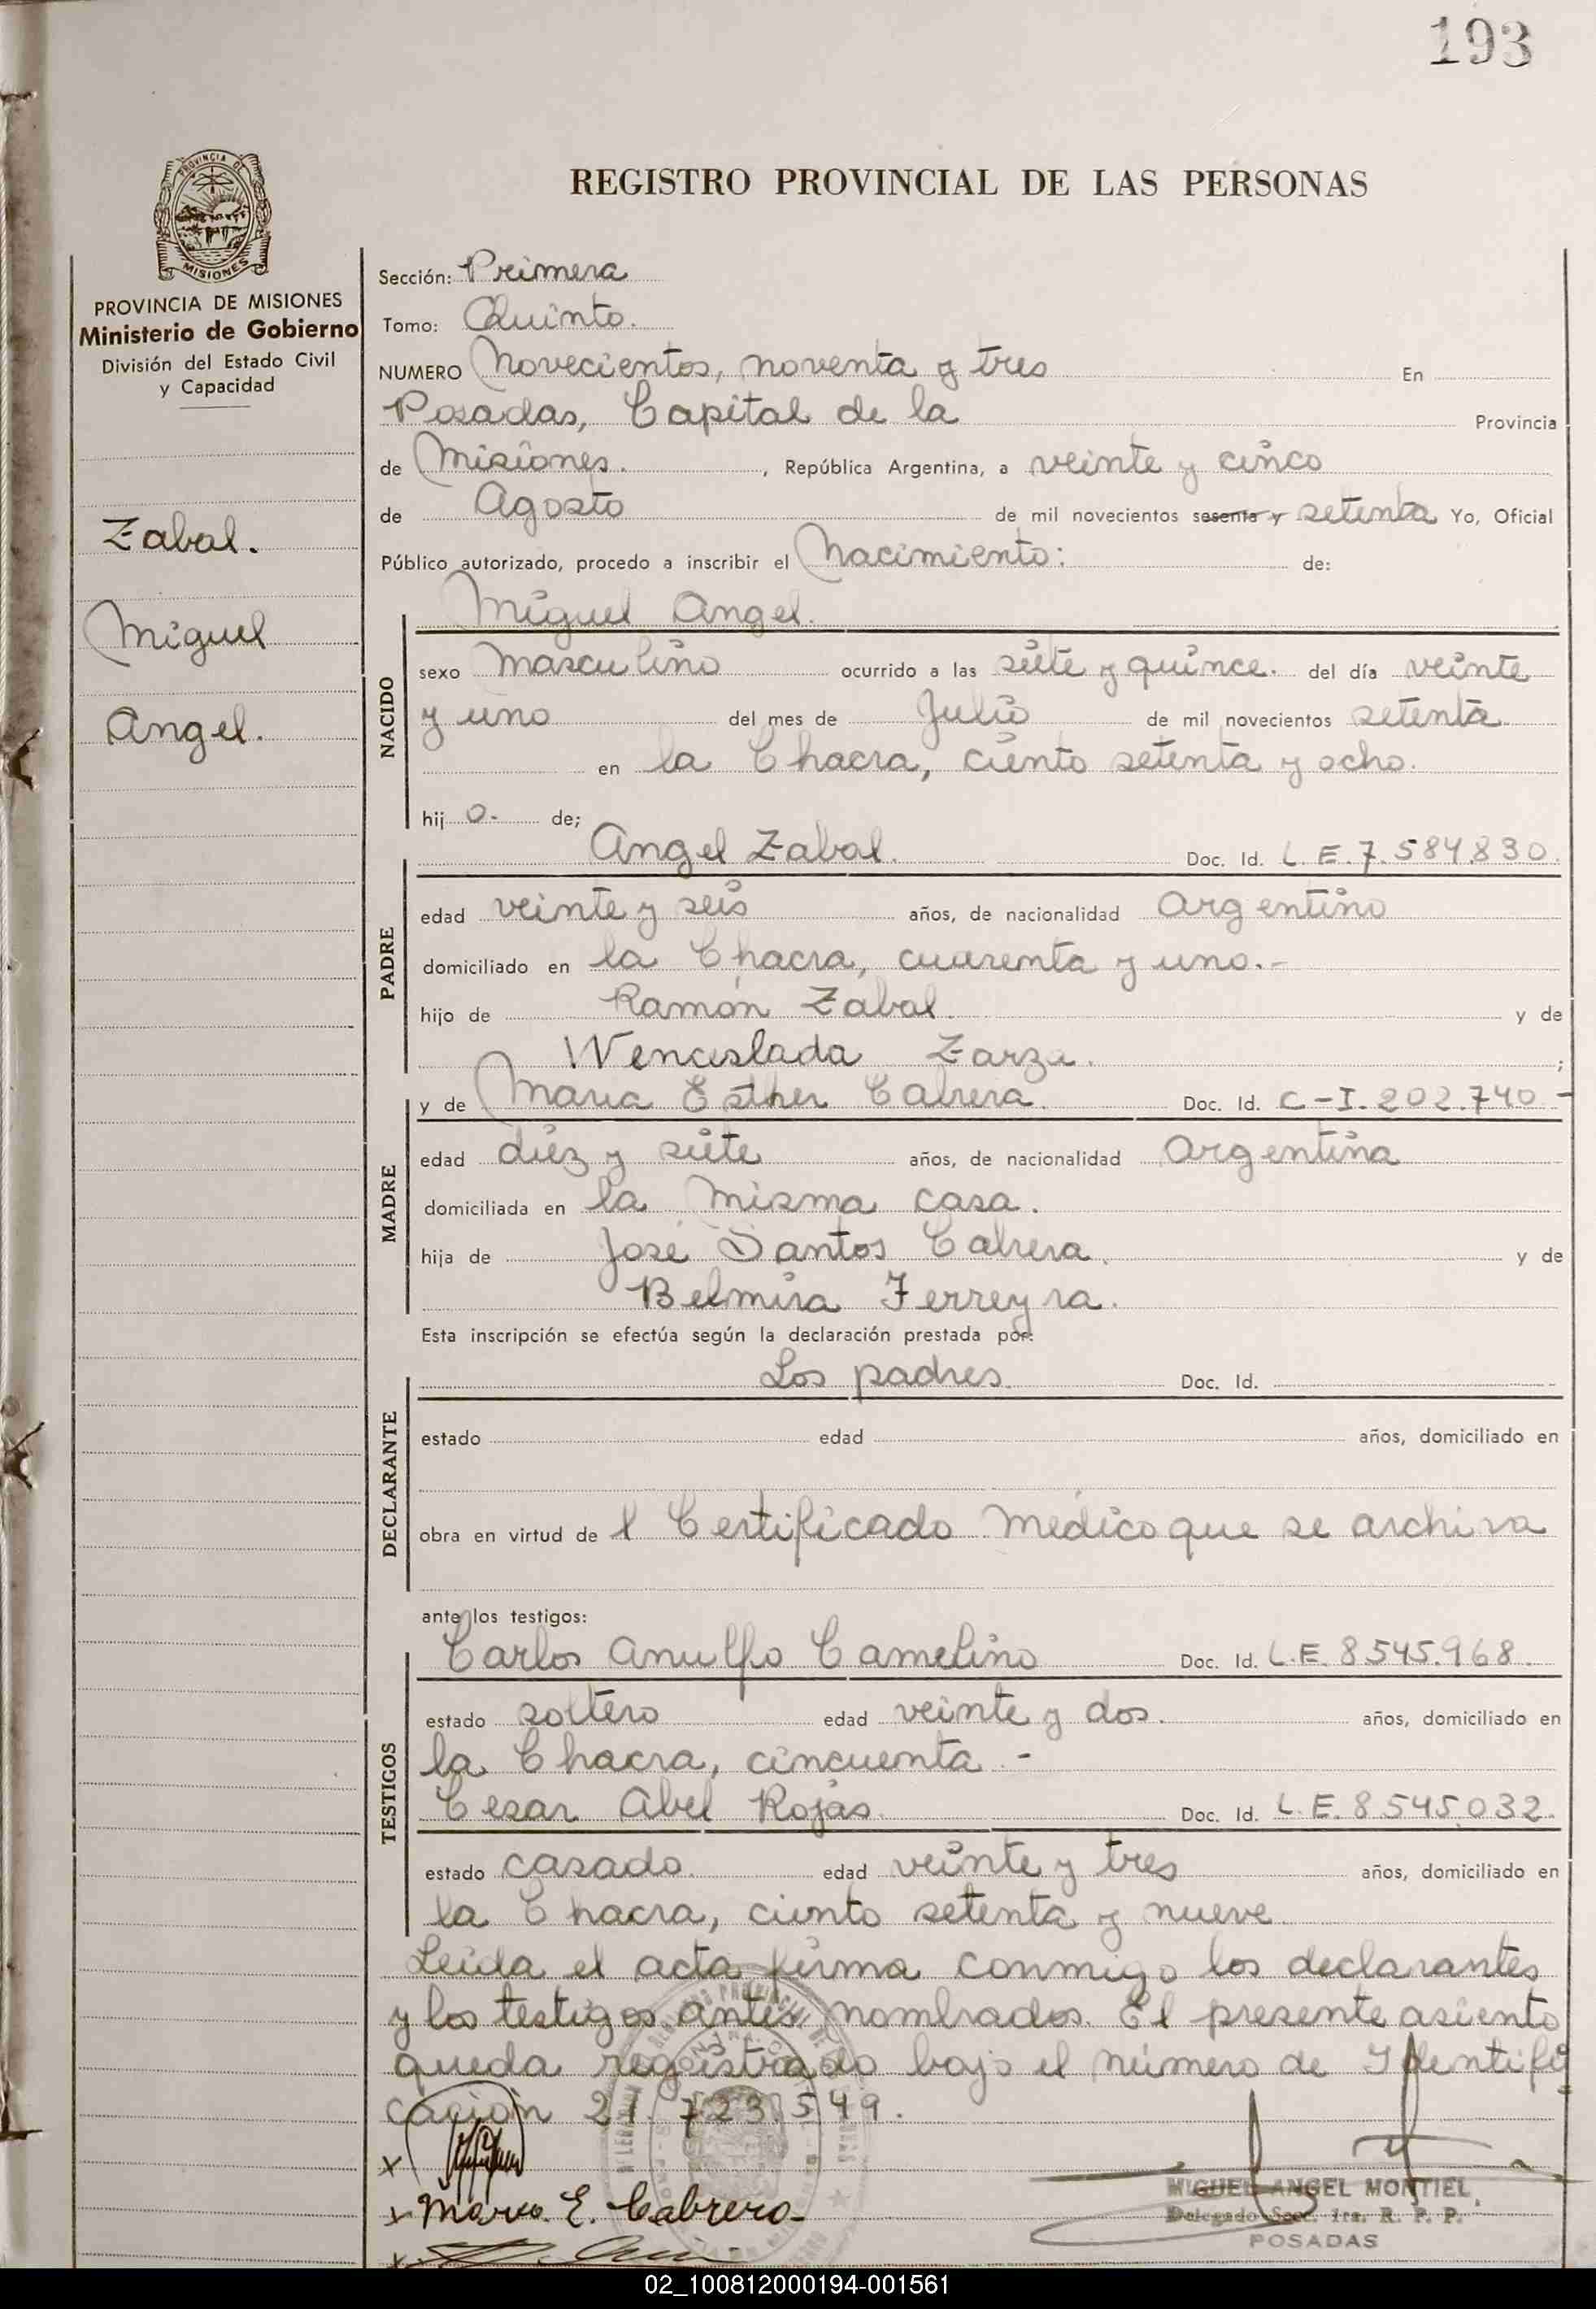 193
PROVINCIA DE
MISIONES
REGISTRO PROVINCIAL DE LAS PERSONAS
PROVINCIA DE MISIONES
Ministerio de Gobierno
División del Estado Civil
y Capacidad
Zabal.
Miguel
Angel.
Sección: Primera
Tomo: Quinto.
NUMERO Novecientos, noventa y tres En
Posadas, Capital de la Provincia
de Misiones. , República Argentina, a veinte y cinco
de Agosto de mil novecientos sesenta y setenta Yo, Oficial
Público autorizado, procedo a inscribir el Nacimiento: de:
Miguel Angel.
NACIDO
sexo masculino ocurrido a las siete y quince. del día veinte
y uno del mes de Julio de mil novecientos setenta
en la Chacra, ciento setenta y ocho.
hij o. de;
Angel Zabal. Doc. Id. L.E. 7.584.830.
PADRE
edad veinte y seis años, de nacionalidad Argentino
domiciliado en la Chacra, cuarenta y uno.-
hijo de Ramón Zabal. y de
Wenceslada Zarza. ;
y de Maria Esther Cabrera. Doc. Id. C-I. 202.740-
MADRE
edad diez y siete años, de nacionalidad Argentina
domiciliada en la misma casa.
hija de José Santos Cabrera. y de
Belmira Ferreyra.
Esta inscripción se efectúa según la declaración prestada por:
Los padres. Doc. Id.
DECLARANTE
estado edad años, domiciliado en
obra en virtud de l Certificado Médico que se archiva
ante los testigos:
Carlos Anulfo Camelino Doc. Id. L.E. 8.545.968.
TESTIGOS
estado soltero edad veinte y dos. años, domiciliado en
la Chacra, cincuenta.-
Cesar Abel Rojas. Doc. Id. L.E. 8.545.032.
estado casado. edad veinte y tres años, domiciliado en
la Chacra, ciento setenta y nueve.
Leída el acta firma conmigo los declarantes
y los testigos antes nombrados. El presente asiento
queda registrado bajo el número de Identifi
cación 21.723.549.
x
x Maria E. Cabrera
x
MIGUEL ANGEL MONTIEL
Delegado Secc. 1ra. R. P. P.
POSADAS
02_100812000194-001561